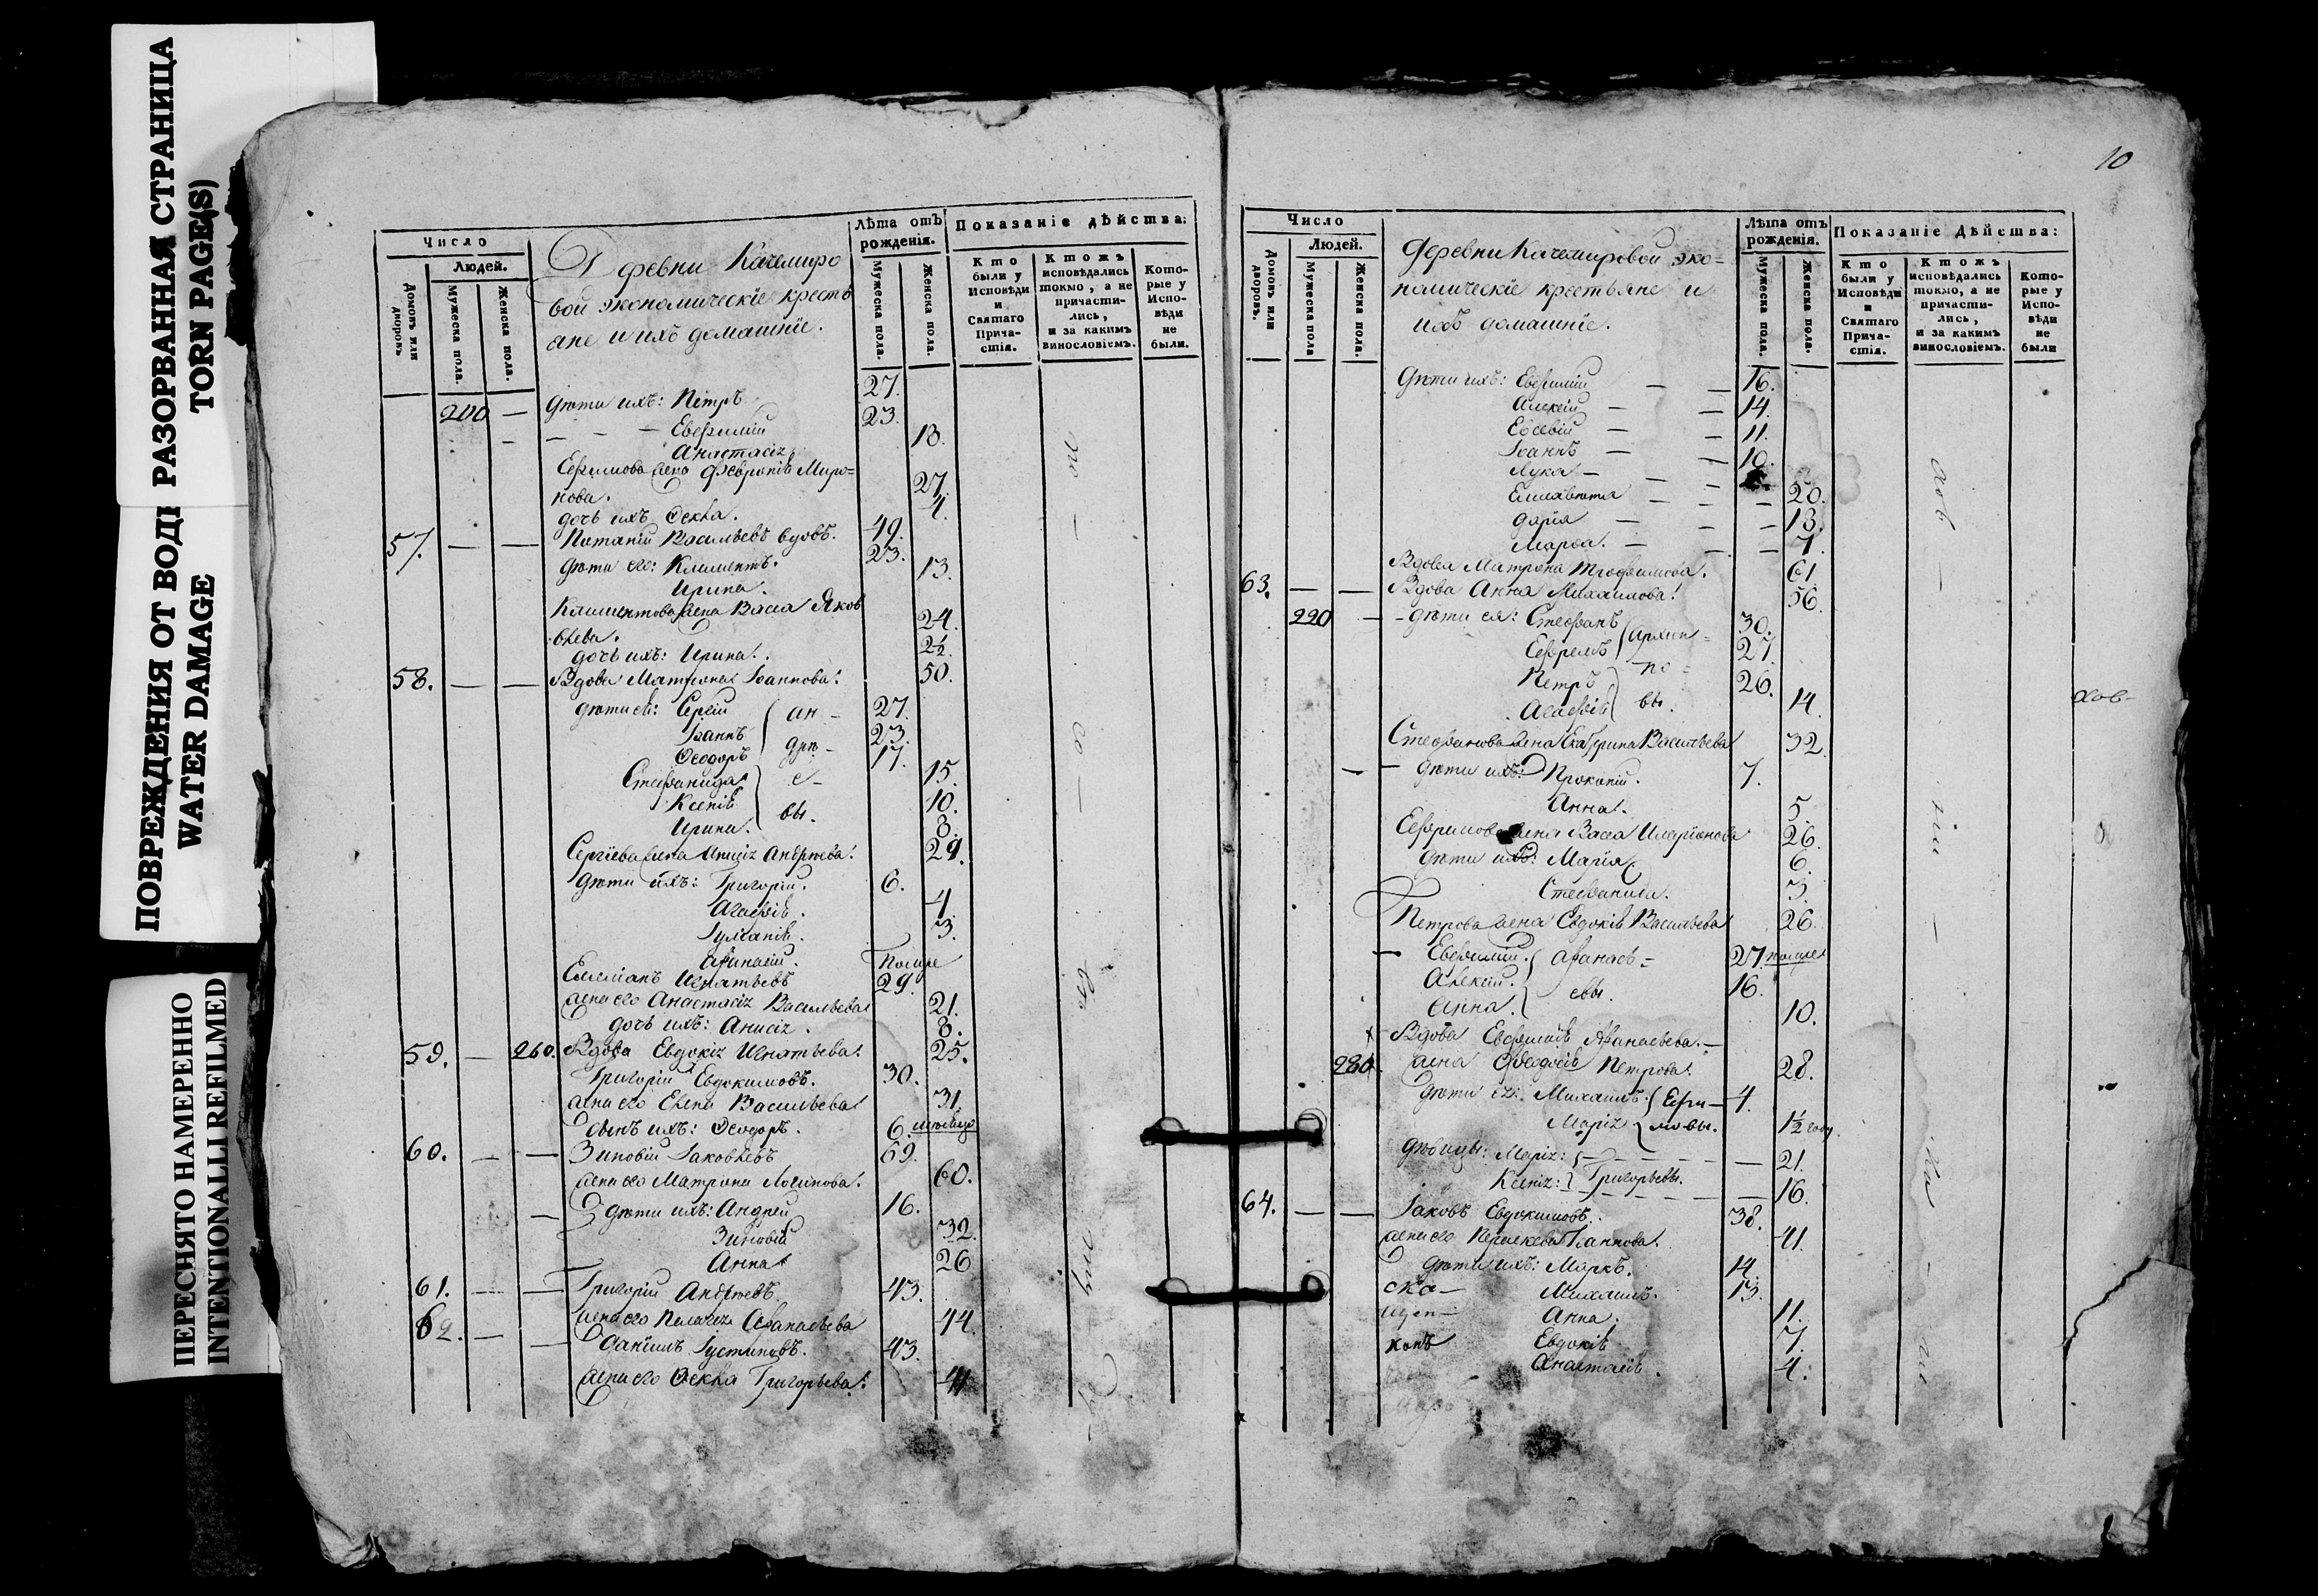 ПОВРЕЖДЕНИЯ ОТ ВОДЫ
WATER DAMAGE
РАЗОРВАННАЯ СТРАНИЦА
TORN PAGE(S)
ПЕРЕСНЯТО НАМЕРЕННО
INTENTIONALLI REFILMED
Число
Людей.
Домовъ или дворовъ
Мужеска пола.
Женска пола.
Деревни Качемиро
вой экономическіе кресть
яне и ихъ домашніе.
Лѣта отъ
рожденія.
Мужеска пола.
Женска пола.
Показаніе дѣйства:
Кто
были у
Исповѣди
и
Святаго
Прича-
стія.
Ктожъ
исповѣдались
токмо, а не
причасти-
лись,
и за какимъ
винословіемъ.
Кото-
рые у
Испо-
вѣди
не
были.
200 — Дѣти ихъ: Петръ 27.
Евфимій 23.
Анастасія 18.
Ефимова жена Февронія Миро=
нова. 27.
дочь их Фекла. 4.
57. — — Потапій Васильевъ вдовъ. 49.
дѣти его: Климентъ. 23.
Ирина. 13.
Климентова жена Васса Яков
влева. 24.
дочь ихъ: Ирина. 2½.
58. — — Вдова Матрона Іоаннова. 50.
дѣти ея: Сергій 27.
Іоаннъ 23.
Ѳеодоръ 17.
Стефанида 15.
Ксенія 10.
Ирина. 8.
ан-
дрѣ-
е-
вы.
Сергіева жена Анисія Андрѣева. 29.
дѣти ихъ: Григорій. 6.
Агафія. 4.
Іуліанія. 3.
Афанасій. помре
Емеліанъ Игнатьевъ 29.
жена его Анастасія Васильева 21.
дочь ихъ: Анисія. 8.
59. — 260. Вдова Евдокія Игнатьева. 25.
Григорій Евдокимовъ. 30.
жена его Елена Васильева 31.
сынъ ихъ: Ѳеодоръ. 6.
60. — — Зиновій Іаковлевъ 69.
жена его Матрона Логинова. 60.
дѣти ихъ: Андрей 16.
Зиновія 32.
Анна 26
61. — — Григорій Андрѣевъ. 43.
жена его Пелагія Афанасьева 44.
62. — — Даніилъ Іустиновъ. 43.
жена его Фекла Григорьева. 41
10
Число
Людей.
Домовъ или дворовъ.
Мужеска пола
Женска пола.
Деревни Качемировой эко=
номическіе крестьяне и
ихъ домашніе.
Лѣта отъ
рожденія.
Мужеска пола.
Женска пола.
Показаніе Дѣйства:
Кто
были у
Исповѣди
и
Святаго
Прича-
стія.
Ктожъ
исповѣдались
токмо, а не
причасти-
лись,
и за какимъ
винословіемъ.
Кото-
рые у
Испо-
вѣди
не
были
Дѣти ихъ: Евфимій — — 16.
Алексій — — 14.
Евсевій — — 11.
Іоаннъ — — 10.
Лука —
Елисавета — — 20.
Дарія — — 18.
Марфа. — — 7.
Вдова Матрона Трофимова. 61.
63. — — Вдова Анна Михаилова. 56.
220 — дѣти ея: Стефанъ 30.
Ефремъ 27.
Петръ 26.
Агафія 14.
Архип=
по=
вы.
Стефанова жена Екатерина Васильева 32
дѣти ихъ: Прокопій. 7.
Анна. 5.
Ефремова жена Васса Иларіонова 26.
дѣти ихъ: Марія 6.
Стефанида. 3.
Петрова жена Евдокія Васильева 26.
Евфимій. 27. помре
Алексій. 16.
Анна. 10.
Афанась=
евы.
Вдова Евфимія Афанасьева. —
280. жена Феодосія Петрова. 28.
дѣти ея: Михаилъ 4.
Марія 1½ году.
Ефи—
мовы.
дѣвицы: Марія: — 21.
Ксенія: Григорьевы. — 16.
64. — — Іаковъ Евдокимовъ. 38.
жена его Параскева Іоаннова. 41.
дѣти ихъ: Маркъ. 14.
Михаилъ. 13.
Анна. 11.
Евдокія 7.
Анастасія. 4.